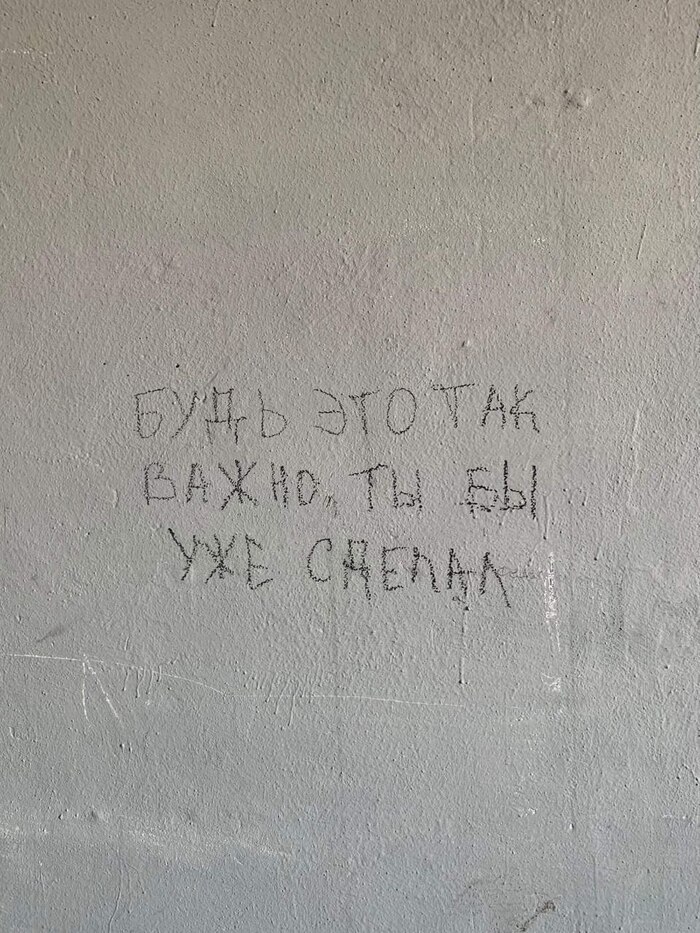 БУДЬ ЭТО ТАК
ВАЖНО, ТЫ БЫ
УЖЕ СДЕЛАЛ